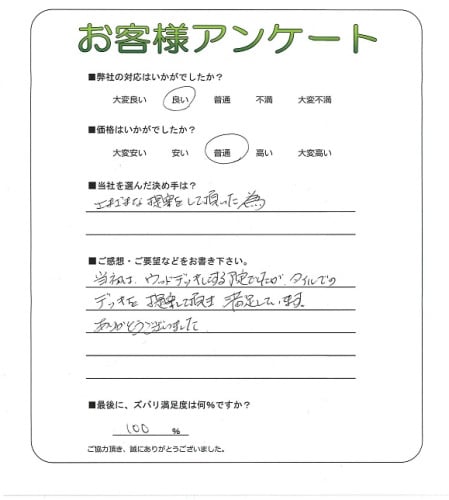 お客様アンケート
■弊社の対応はいかがでしたか？
大変良い 良い 普通 不満 大変不満
■価格はいかがでしたか？
大変安い 安い 普通 高い 大変高い
■当社を選んだ決め手は？
な提案をして頂った為
■ご感想・ご要望などをお書き下さい。
当初は、ウッドデッキにする予定でしたが、タイルでの
デッキを提案して頂き満足しています。
ありがとうございました
■最後に、ズバリ満足度は何％ですか？
100 ％
ご協力頂き、誠にありがとうございました。